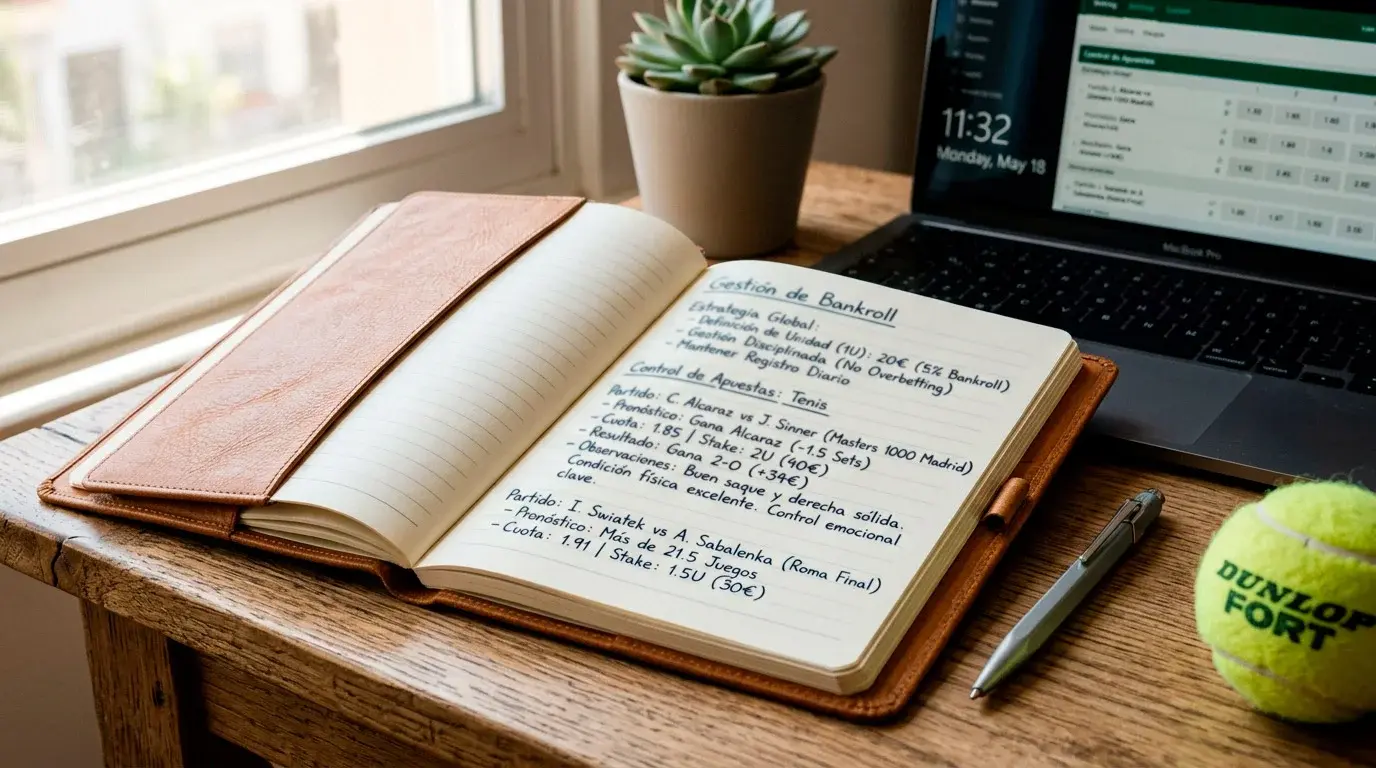 Gestión de Bankroll
Estrategia Global:
- Definición de Unidad (1U): 20€ (5% Bankroll)
- Gestión Disciplinada (No Overbetting)
- Mantener Registro Diario
Control de Apuestas: Tenis
Partido: C. Alcaraz vs J. Sinner (Masters 1000 Madrid)
- Pronóstico: Gana Alcaraz (-1.5 Sets)
- Cuota: 1.85 | Stake: 2U (40€)
- Resultado: Gana 2-0 (+34€)
- Observaciones: Buen saque y derecha sólida.
Condición física excelente. Control emocional
clave.
Partido: I. Swiatek vs A. Sabalenka (Roma Final)
- Pronóstico: Más de 21.5 Juegos
- Cuota: 1.91 | Stake: 1.5U (30€)
11:32
Monday, May 18
Control de Apuestas
MacBook Pro
DUNLOP
FORT